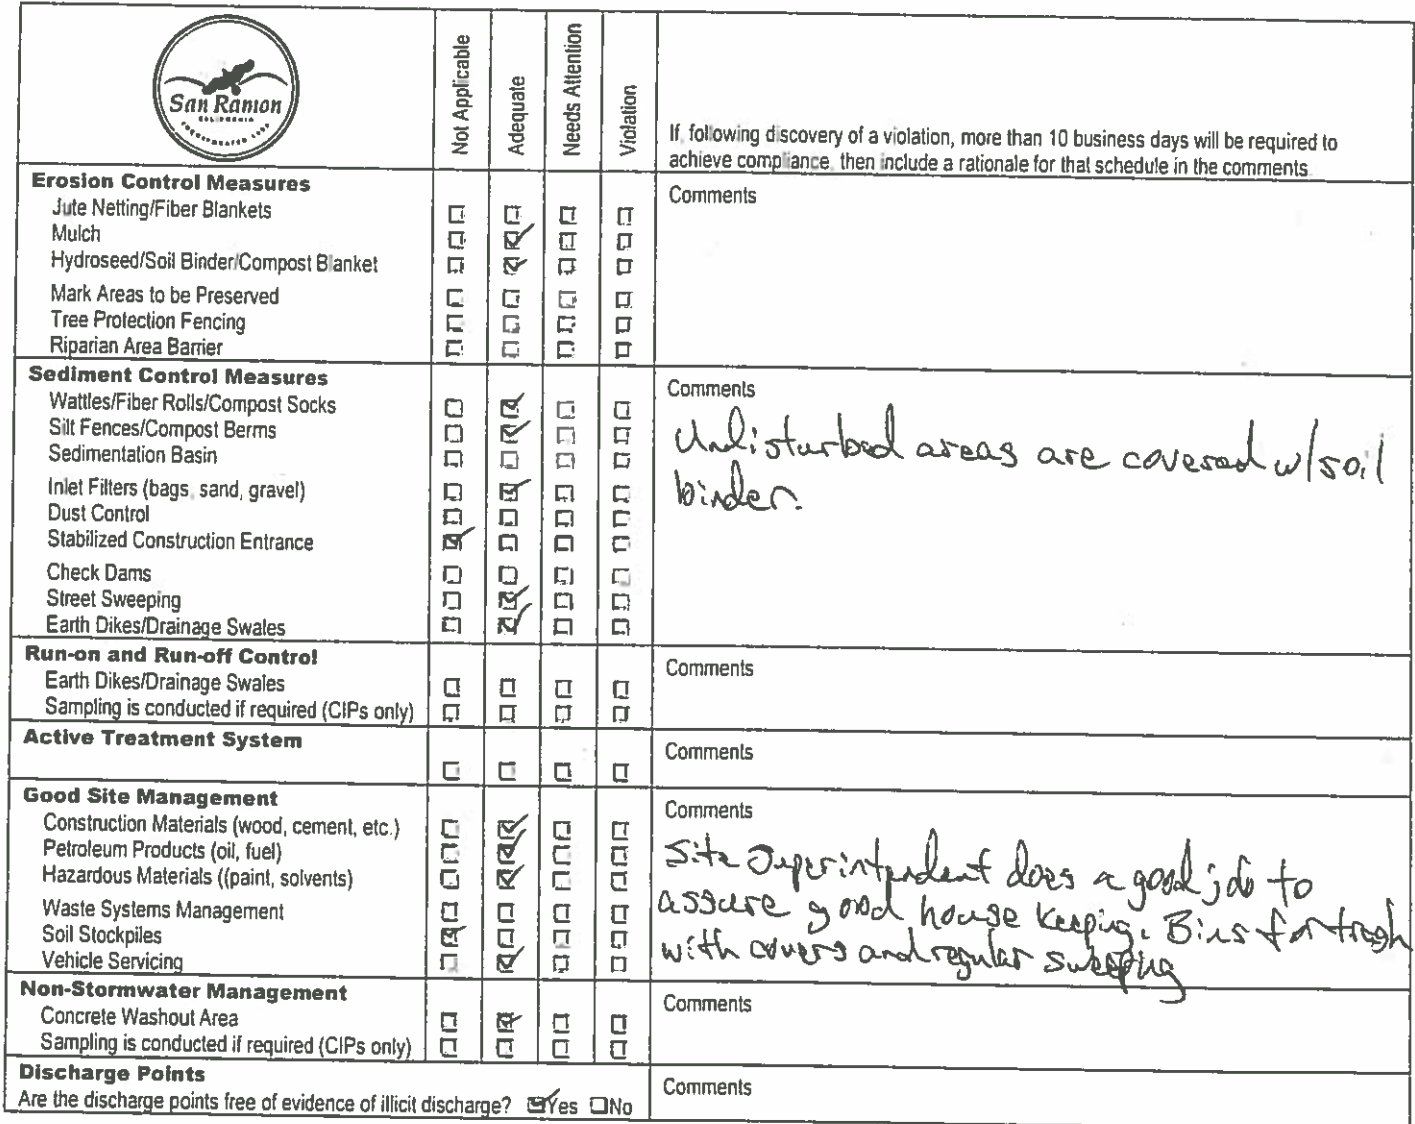 San Ramon
CALIFORNIA
INCORPORATED 1983
Not Applicable
Adequate
Needs Attention
Violation
If, following discovery of a violation, more than 10 business days will be required to
achieve compliance, then include a rationale for that schedule in the comments.
Erosion Control Measures
Comments
Jute Netting/Fiber Blankets
Mulch
Hydroseed/Soil Binder/Compost Blanket
Mark Areas to be Preserved
Tree Protection Fencing
Riparian Area Barrier
Sediment Control Measures
Comments
Wattles/Fiber Rolls/Compost Socks
Silt Fences/Compost Berms
Sedimentation Basin
Inlet Filters (bags, sand, gravel)
Dust Control
Stabilized Construction Entrance
Check Dams
Street Sweeping
Earth Dikes/Drainage Swales
Undisturbed areas are covered w/soil
binder.
Run-on and Run-off Control
Comments
Earth Dikes/Drainage Swales
Sampling is conducted if required (CIPs only)
Active Treatment System
Comments
Good Site Management
Comments
Construction Materials (wood, cement, etc.)
Petroleum Products (oil, fuel)
Hazardous Materials ((paint, solvents)
Waste Systems Management
Soil Stockpiles
Vehicle Servicing
Site Superintendent does a good job to
assure good house keeping. Bins for trash
with covers and regular sweeping
Non-Stormwater Management
Comments
Concrete Washout Area
Sampling is conducted if required (CIPs only)
Discharge Points
Comments
Are the discharge points free of evidence of illicit discharge? Yes No